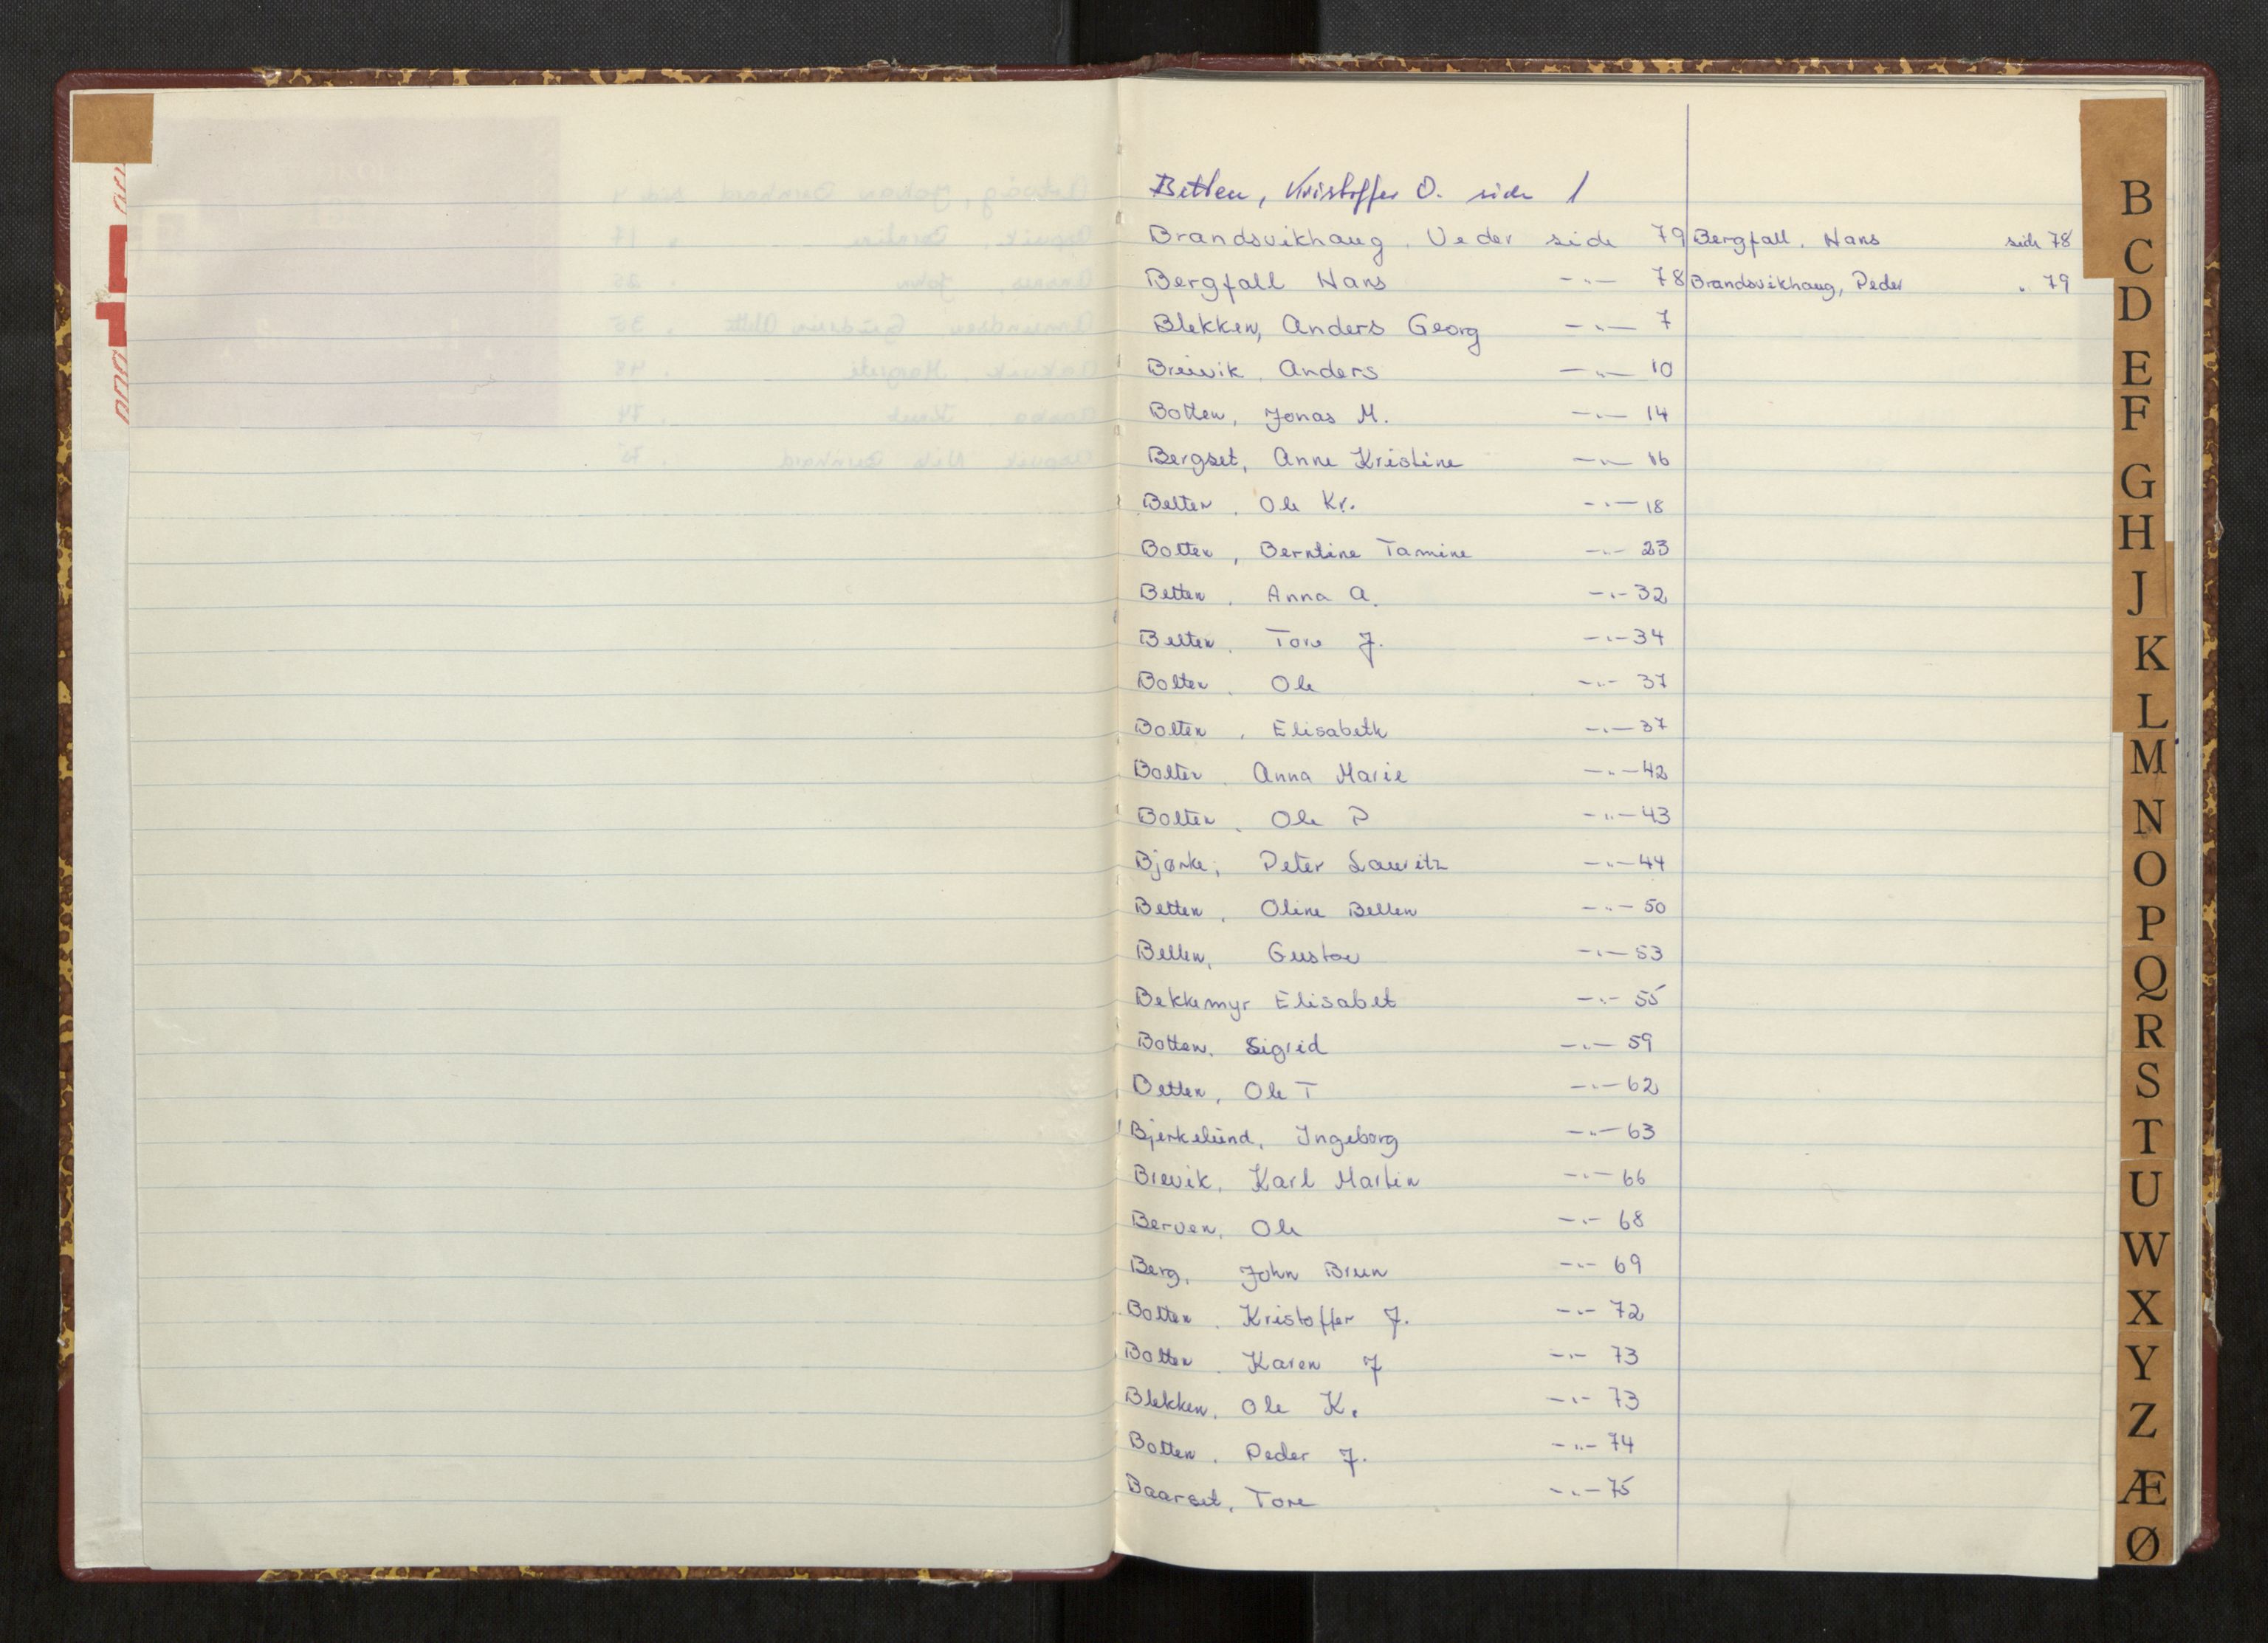 Betten, Kristoffer O. side 1
Brandsvikhaug, Peder side 79
Bergfall Hans -"- 78
Blekken, Anders Georg -"- 7
Breivik, Anders -"- 10
Botten, Jonas M. -"- 14
Bergset, Anne Kristine -"- 16
Betten, Ole Kr. -"- 18
Botten, Berntine Tamine -"- 23
Betten, Anna A. -"- 32
Betten, Tore J. -"- 34
Botten, Ole -"- 37
Botten, Elisabeth -"- 37
Botten, Anna Marie -"- 42
Botten, Ole P -"- 43
Bjørke, Peter Lauritz -"- 44
Betten, Oline Betten -"- 50
Betten, Gustav -"- 53
Bekkemyr Elisabet -"- 55
Botten, Sigrid -"- 59
Betten, Ole T -"- 62
Bjerkelund, Ingeborg -"- 63
Brevik, Karl Martin -"- 66
Berven, Ole -"- 68
Berg, John Brun -"- 69
Botten, Kristoffer J. -"- 72
Botten, Karen J -"- 73
Blekken, Ole K. -"- 73
Botten, Peder J. -"- 74
Baarset, Tore -"- 75
Bergfall, Hans side 78
Brandsvikhaug, Peder " 79
B
C
D
E
F
G
H
J
K
L
M
N
O
P
Q
R
S
T
U
W
X
Y
Z
Æ
Ø